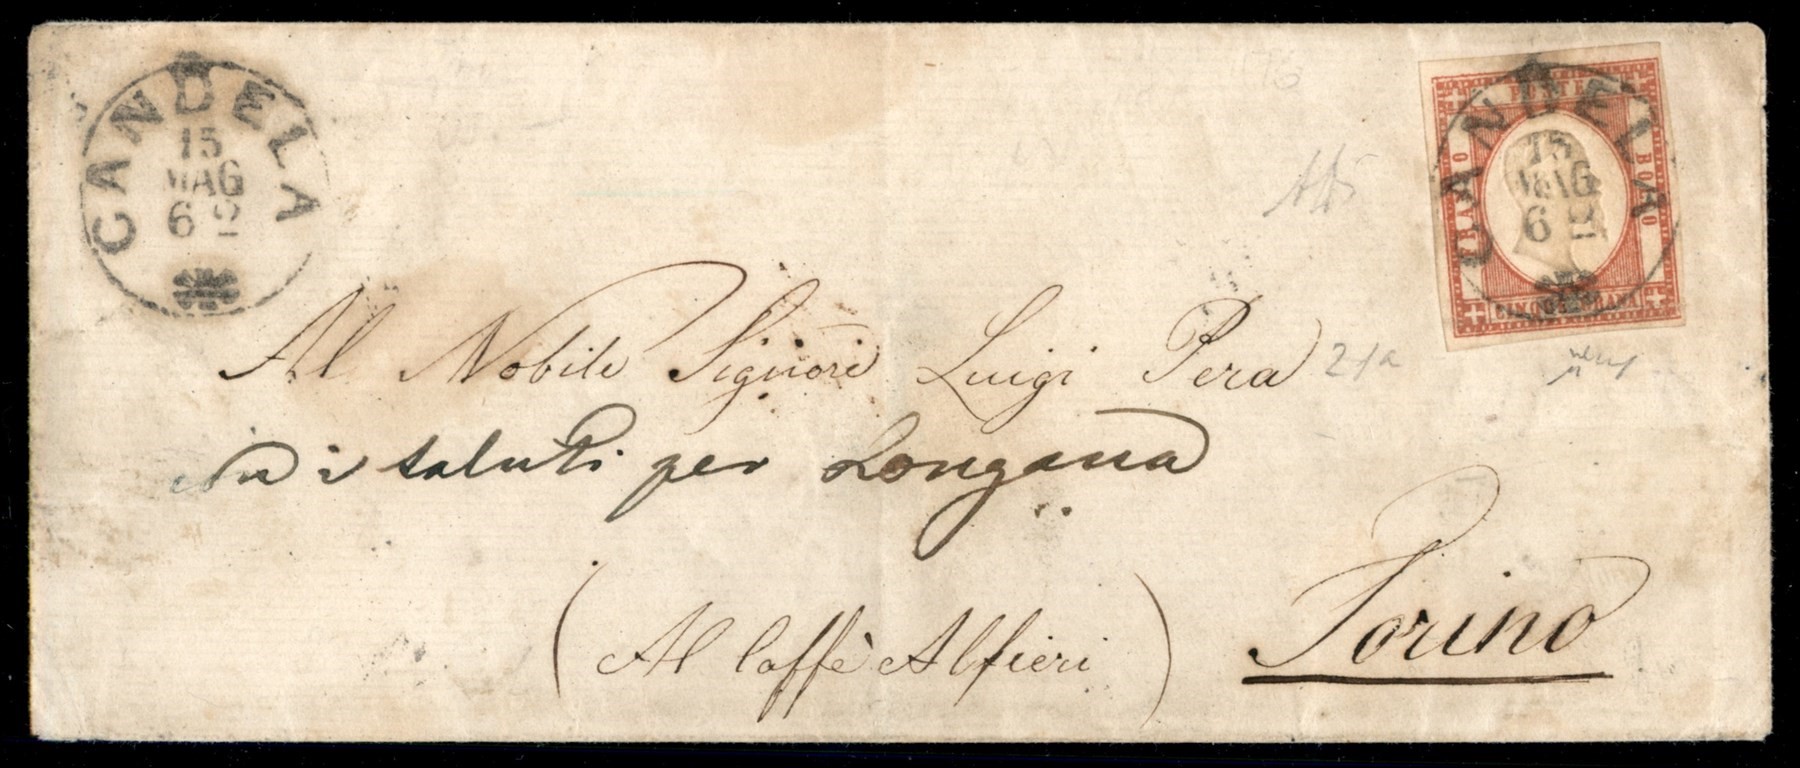 CANDELA
15
MAG
62
FRANCO
BOLLO
CANDELA
15
MAG
62
Al Nobile Signore Luigi Pera
21a
con i saluti per Longana
(Al Caffè Alfieri)
Torino